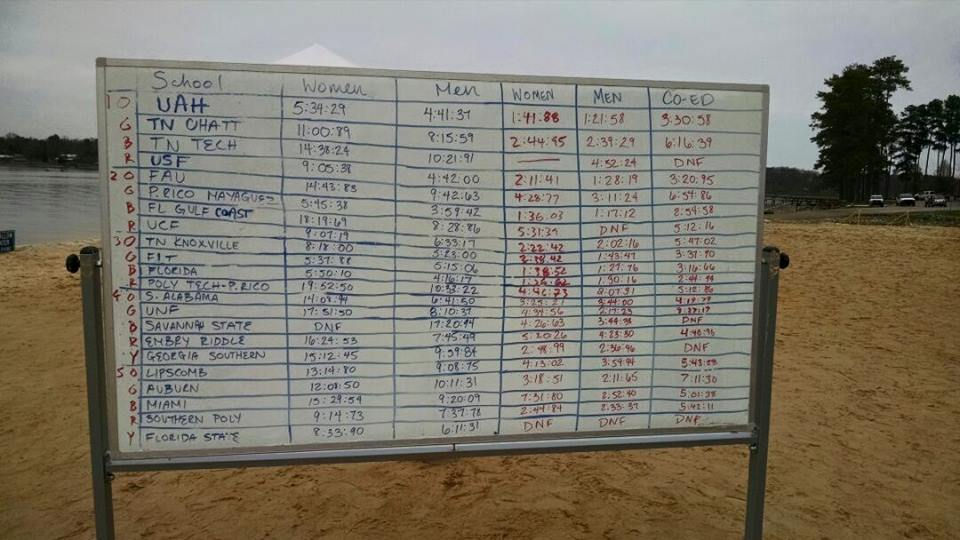 School Women Men WOMEN MEN CO-ED
1 O UAH 5:34:29 4:41:37 1:41:88 1:21:58 3:30:58
G TN CHATT 11:00:89 8:15:59 2:44:95 2:39:29 6:16:39
B TN TECH 14:38:24 10:21:91 —— 4:52:24 DNF
R USF 9:05:38 4:42:00 2:11:41 1:28:19 3:20:95
2 O FAU 14:43:83 9:42:63 4:28:77 3:11:24 6:54:86
G P.RICO MAYAGUEZ 5:45:38 3:59:42 1:36.03 1:17:12 2:54:58
B FL GULF COAST 18:19:69 8:28:86 5:31:39 DNF 5:12:16
R UCF 9:07:19 6:33:17 2:22:42 2:02:16 5:47:02
3 O TN KNOXVILLE 8:18:00 5:23:00 1:43:47
G FIT 5:37:88 5:15:06 1:38:52 1:27:76 3:16:66
B FLORIDA 5:50:10 4:16:17 1:30:16
R POLY TECH-P.RICO 19:52:50 10:33:22 4:42:73 4:07:91 5:12:86
4 O S. ALABAMA 14:08:94 6:41:50 3:25:27 3:44:00
G UNF 17:51:50 8:10:37 4:34:56 2:17:23
B SAVANNAH STATE DNF 17:20:94 4:26:63 3:44:38 DNF
R EMBRY RIDDLE 16:24:53 7:45:49 5:20:26 4:23:30 4:40:95
Y GEORGIA SOUTHERN 15:12:45 9:59:84 2:48:99 2:36:46 DNF
5 O LIPSCOMB 13:14:80 9:08:75 4:13:02 3:54:94
G AUBURN 12:08:50 10:11:31 3:18:51 2:11:65 7:11:30
B MIAMI 15:29:54 9:20:09 7:31:80 2:52:40 5:01:28
R SOUTHERN POLY 9:14:73 7:37:78 2:44:84 2:33:37 5:42:11
Y FLORIDA STATE 8:33:90 6:11:31 DNF DNF DNF